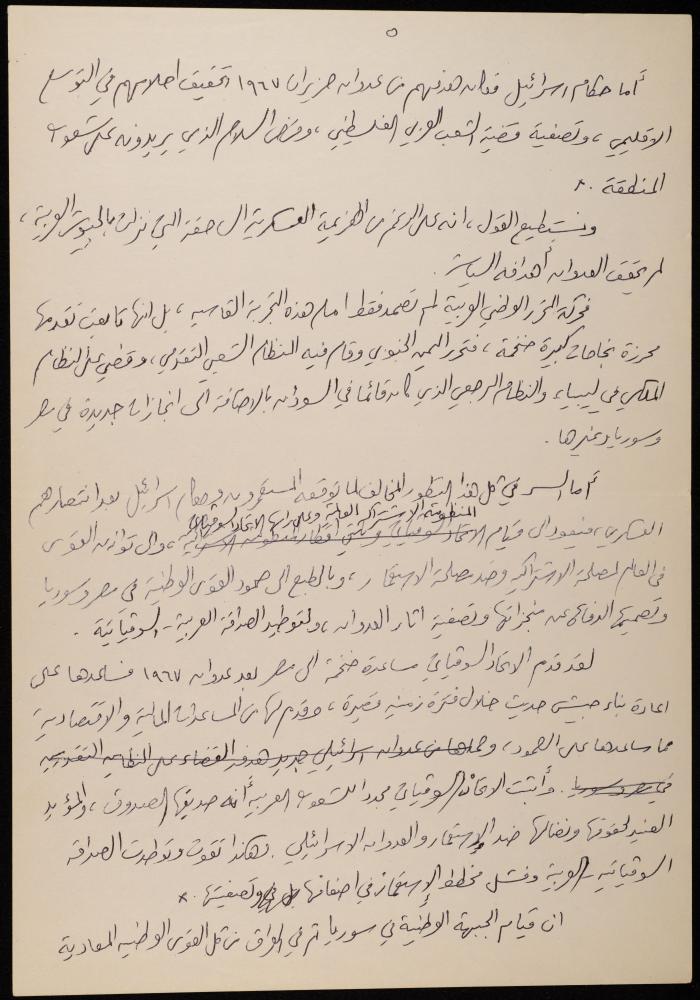 ٥
أما حكام اسرائيل فكان هدفهم من عدوان حزيران ١٩٦٧ تحقيق احلامهم في التوسع
الاقليمي ، وتصفية قضية الشعب العربي الفلسطيني ، وفرض السلام الذي يريدونه على شعوب
المنطقة .
ونستطيع القول ، انه على الرغم من الهزيمة العسكرية التي نزلت بالجيوش العربية ،
لم يحقق العدوان أهدافه السياسية .
فحركة التحرر الوطني العربية لم تصمد فقط امام هذه التجربة القاسيه ، بل انها تابعت تقدمها
محرزة نجاحات كبيرة ضخمة ، فتحرر اليمن الجنوبي وقام فيه النظام الشعبي التقدمي ، وقضي على النظام
الملكي في ليبياء والنظام الرجعي الذي كان قائما في السودان بالاضافة الى انجازات جديدة في مصر
وسوريا وغيرها .
أما السر في مثل هذا التطور المخالف لما توقعه المستعمرون وحكام اسرائيل بعد انتصارهم
المنظومة الاشتراكية العالمية وعلى رأسها الاتحاد السوفياتي
العسكري ، فيعود الى قيام الاتحاد السوفياتي وباقي اقطار المنظومة الاشتراكية ، والى توازن القوى
في العالم لمصلحة الاشتراكية وضد مصلحة الاستعمار ، وبالطبع الى صمود القوى الوطنية في مصر وسوريا
وتصميمها الدفاع عن منجزاتها وتصفية اثار العدوان ، ولتوطيد الصداقة العربية - السوفياتية .
لقد قدم الاتحاد السوفياتي مساعدة ضخمة الى مصر بعد عدوان ١٩٦٧ فساعدها على
اعادة بناء جيش حديث خلال فترة زمنية قصيرة ، وقدم لها من المساعدات المالية والاقتصادية
مما ساعدها على الصمود ، وحماها من عدوان اسرائيلي جديد بهدف القضاء على النظامين التقدميين
في مصر وسوريا . وأثبت الاتحاد السوفياتي مجددا للشعوب العربية أنه صديقها الصدوق ، والمؤيد
العنيد لحقوقها ونضالها ضد الإستعمار والعدوان الاسرائيلي . وهكذا تقوت وتوطدت الصداقة
السوفياتيه - العربية وفشل مخطط الإستعمار في اضعافها وتصفيتها .
ان قيام الجبهة الوطنية في سوريا ثم في العراق من كل القوى الوطنيه المعادية